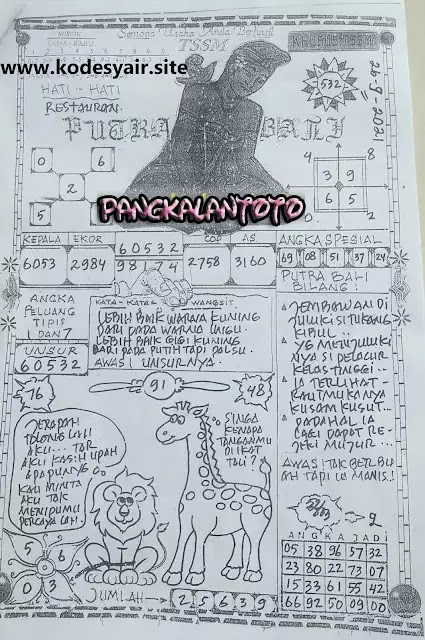 Semoga Usaha Anda Berhasil
TSSM
www.kodesyair.site
26-9-2021
532
HATI - HATI
RESTAURAN.
PUTRA BALI
0 6
2
5
4 8
3 9
6 5
0 2
PANGKALANTOTO
KEPALA EKOR
6053 2984
60532
98174
COP AS
2758 3160
ANGKA SPESIAL
69 08 51 37 24
PUTRA BALI
BILANG :
ANGKA
PELUANG
TIPIS
DAN 7
UNSUR
60532
KATA - KATA WANGSIT
LEBIH BAIK WARNA KUNING
DARI PADA WARNA UNGU.
LEBIH BAIK GIGI KUNING
DARI PADA PUTIH TAPI PALSU.
AWAS! UNSURNYA.
JEMBAWAN DI
JULUKI SI TUKANG
KIBUL..
YG MENJULUKI
NYA SI PELACUR
KELAS TINGGI..
IA TERLIHAT -
RAUT MUKANYA
KUSAM KUSUT..
PADAHAL IA
LAGI DAPAT RE-
JEKI MUJUR...
AWAS! TAK BERTUBUH
AH TAPI IA MANIS.!
76
91
48
JERAPAH
TOLONG LAH
AKU... TAR
AKU KASIH UPAH
APA PUN YG
KAU MINTA
AKU TAK
MENIPUMU
PERCAYA LAH.
SINGA
KENAPA
TANGANMU
DI IKAT
TALI ?
5 6
0 3
JUMLAH → 2 5 6 3 9
ANGKA JADI
05 38 96 57 32
23 80 22 73 07
15 33 61 55 42
66 92 50 09 00